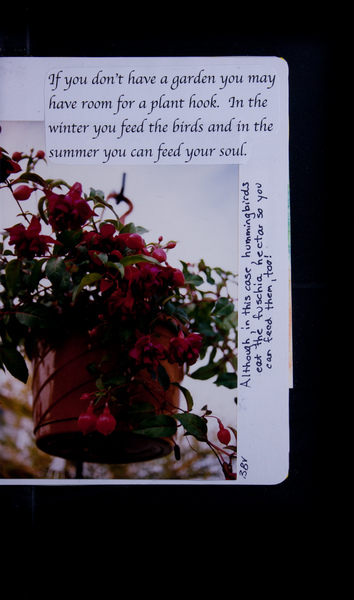 If you don't have a garden you may
have room for a plant hook. In the
winter you feed the birds and in the
summer you can feed your soul.
Although in this case, hummingbirds
eat the fuschia nectar so you
can feed them, too!
38V